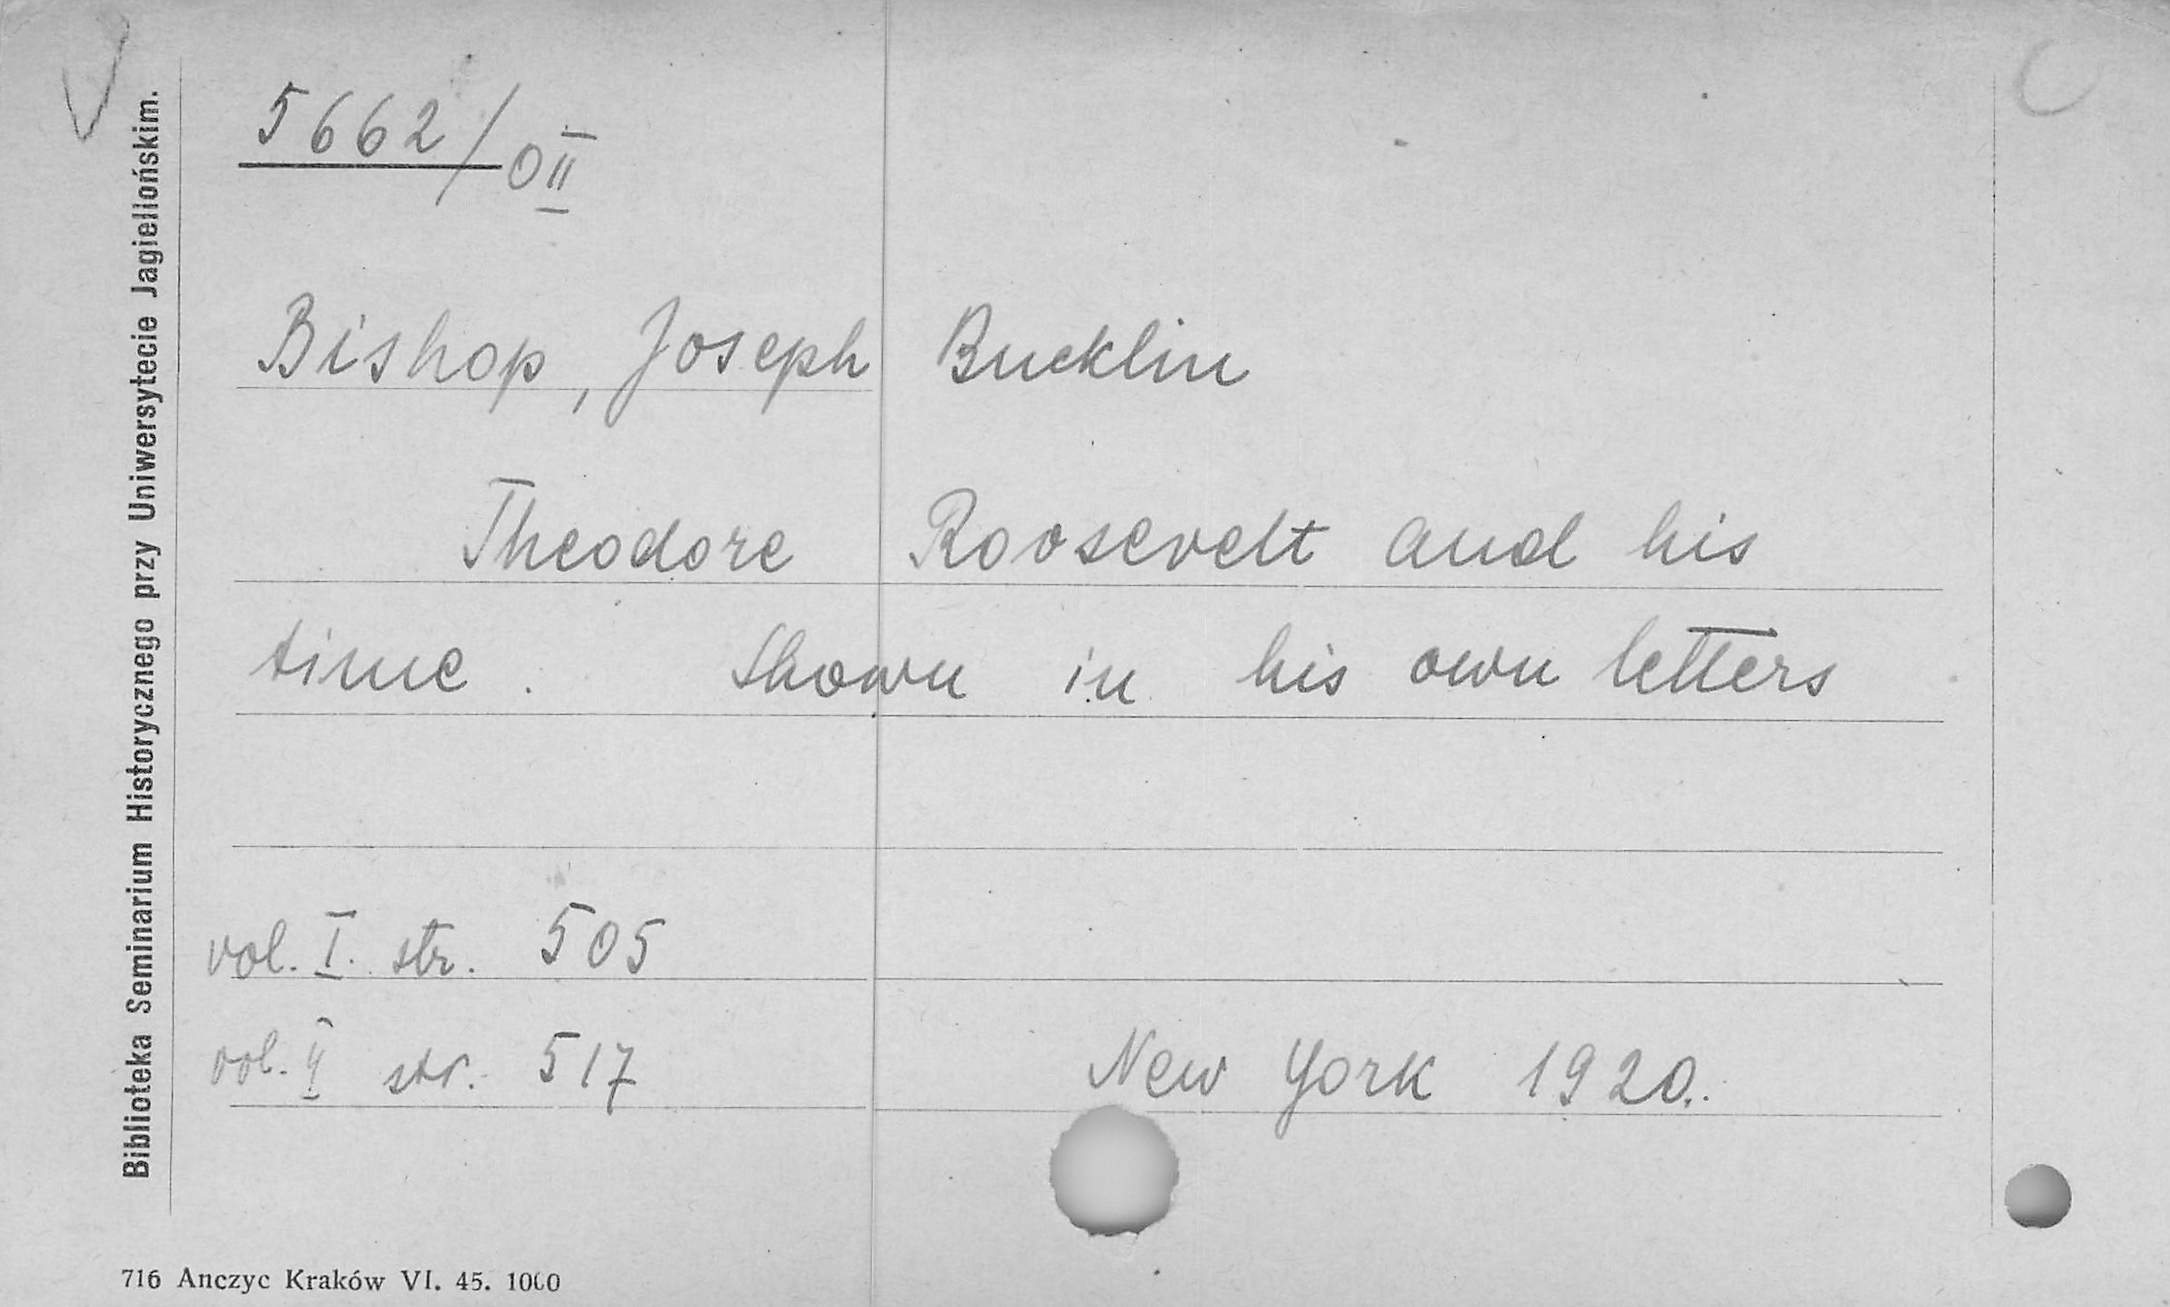 5662/0II
Bishop, Joseph Bucklin
Theodore Roosevelt and his
time. Shown in his own letters
vol. I. str. 505
vol. II str. 517
New York 1920.
Biblioteka Seminarium Historycznego przy Uniwersytecie Jagiellońskim.
716 Anczyc Kraków VI. 45. 1000